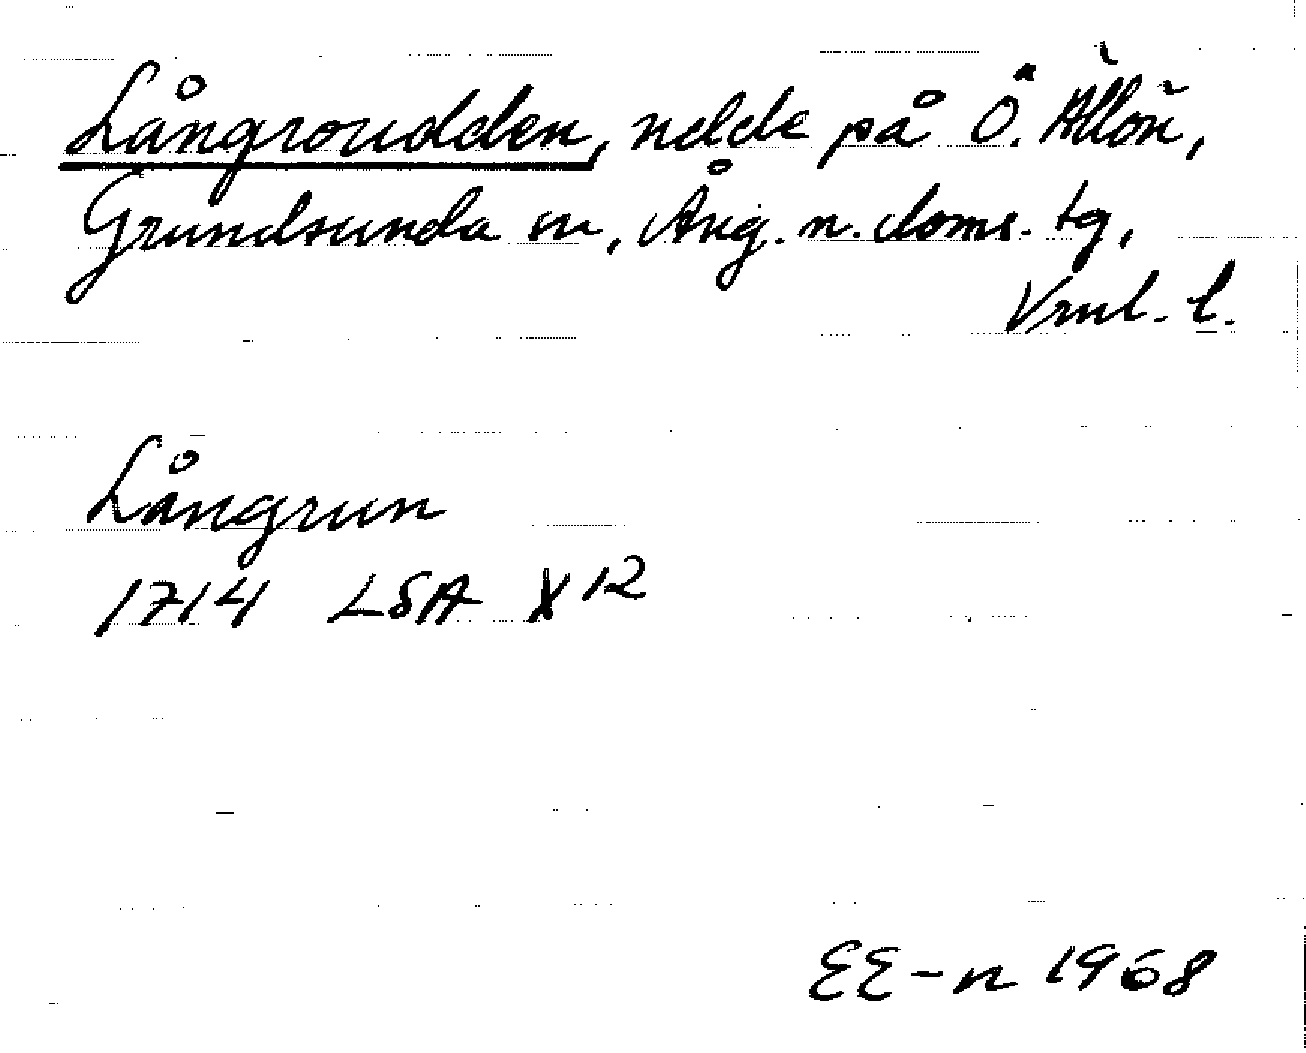 Långroudden, udde på Ö. Ållön,
Grundsunda sn, Ång. n. doms. tg,
Vrnl. l.
Långrun
1714 LSA X 12
EE-n 1968